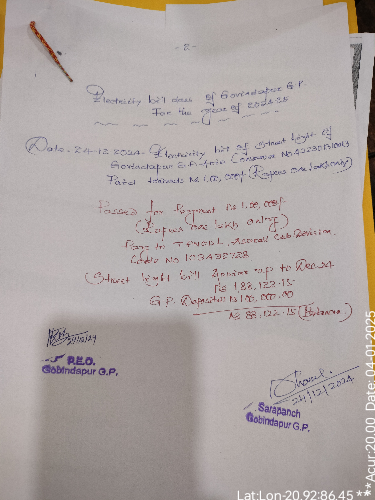 - 2 -
Electricity bill dues of Govindapur G.P.
For the year of 2024-25
Date:- 24-12-2024- Electricity bill of Street light of
Govindapur G.P.
Paid towards Rs 1,00,000/- (Rupees one lakh only)
Passed for Payment Rs 1,00,000/-
(Rupees one lakh only)
Page to Sub Division
(Street light bill up to
Rs 1,88,122.15
G.P. Deposited Rs 1,00,000.00
Rs 88,122.15 (Balance)
24/12/24
P.E.O.
Gobindapur G.P.
24/12/2024
Sarapanch
Gobindapur G.P.
Lat:Lon-20.92:86.45 ***Acur:20.00, Date: 04-01-2025